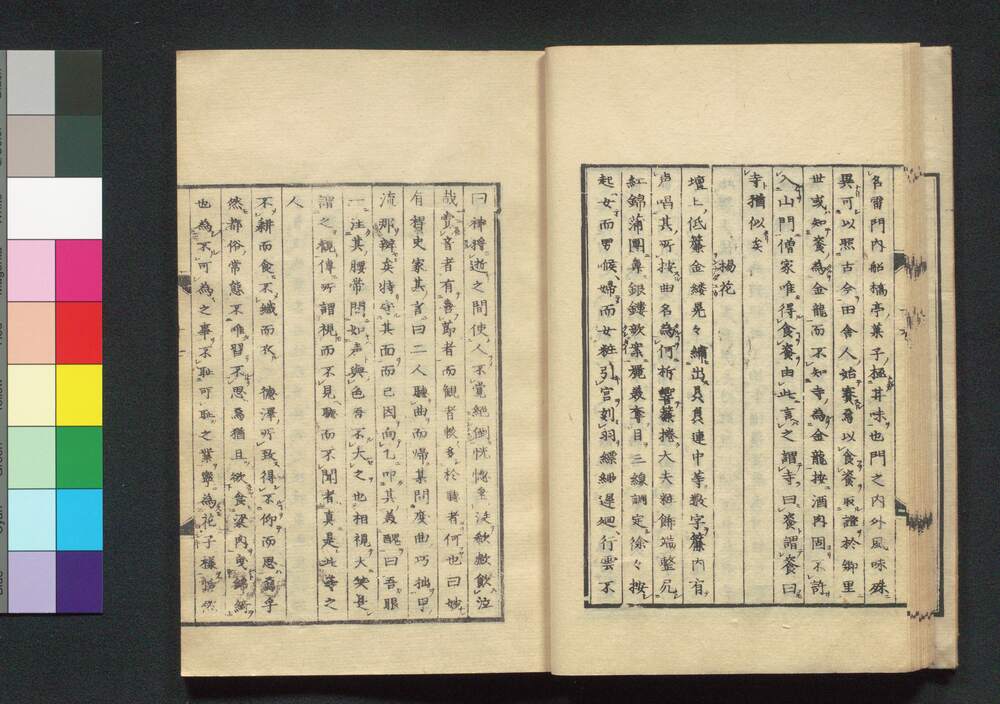 名雷門內船橋亭菓子極其味也門之內外風味殊
異可以照古今田舍人始賽焉以食餈取證於鄉里
世或知餈為金龍而不知寺為金龍按酒肉固不許
入山門僧家唯得食餈由此言之謂寺曰餈謂餈曰
寺猶似矣
楊花
壇上低簾金縷晃々繡出員員連中等數字簾內有
聲唱其所按曲名為們柝響簾捲大夫粧飾端整尻
紅錦蒲團鼻銀鏤欹案麗羨奪目三線調定徐々按
起女而男候婦而女粧引宮刻羽縹緲遲廻行雲不
曰神捋逝之間使人不覺絕倒恍惚垂涎欷歔飲泣
哉賣音者有善節者而觀者輒多於聽者何也曰妙
有稗史家其言曰二人聽曲而歸某問度曲巧拙甲
流那辨矣特守其面而已因向乙叩其美醜曰吾眼
一注其腰帶間如声與色吾不大之也相視大笑是
謂之觀傳所謂視而不見聽而不聞者真是此等之
人
不耕而食不織而衣 德澤所致得不仰而思焉乎
然都俗常態不唯習不思焉猶且欲食粱肉曳錦
也為不可為之事不恥可恥之業寧為花子樣